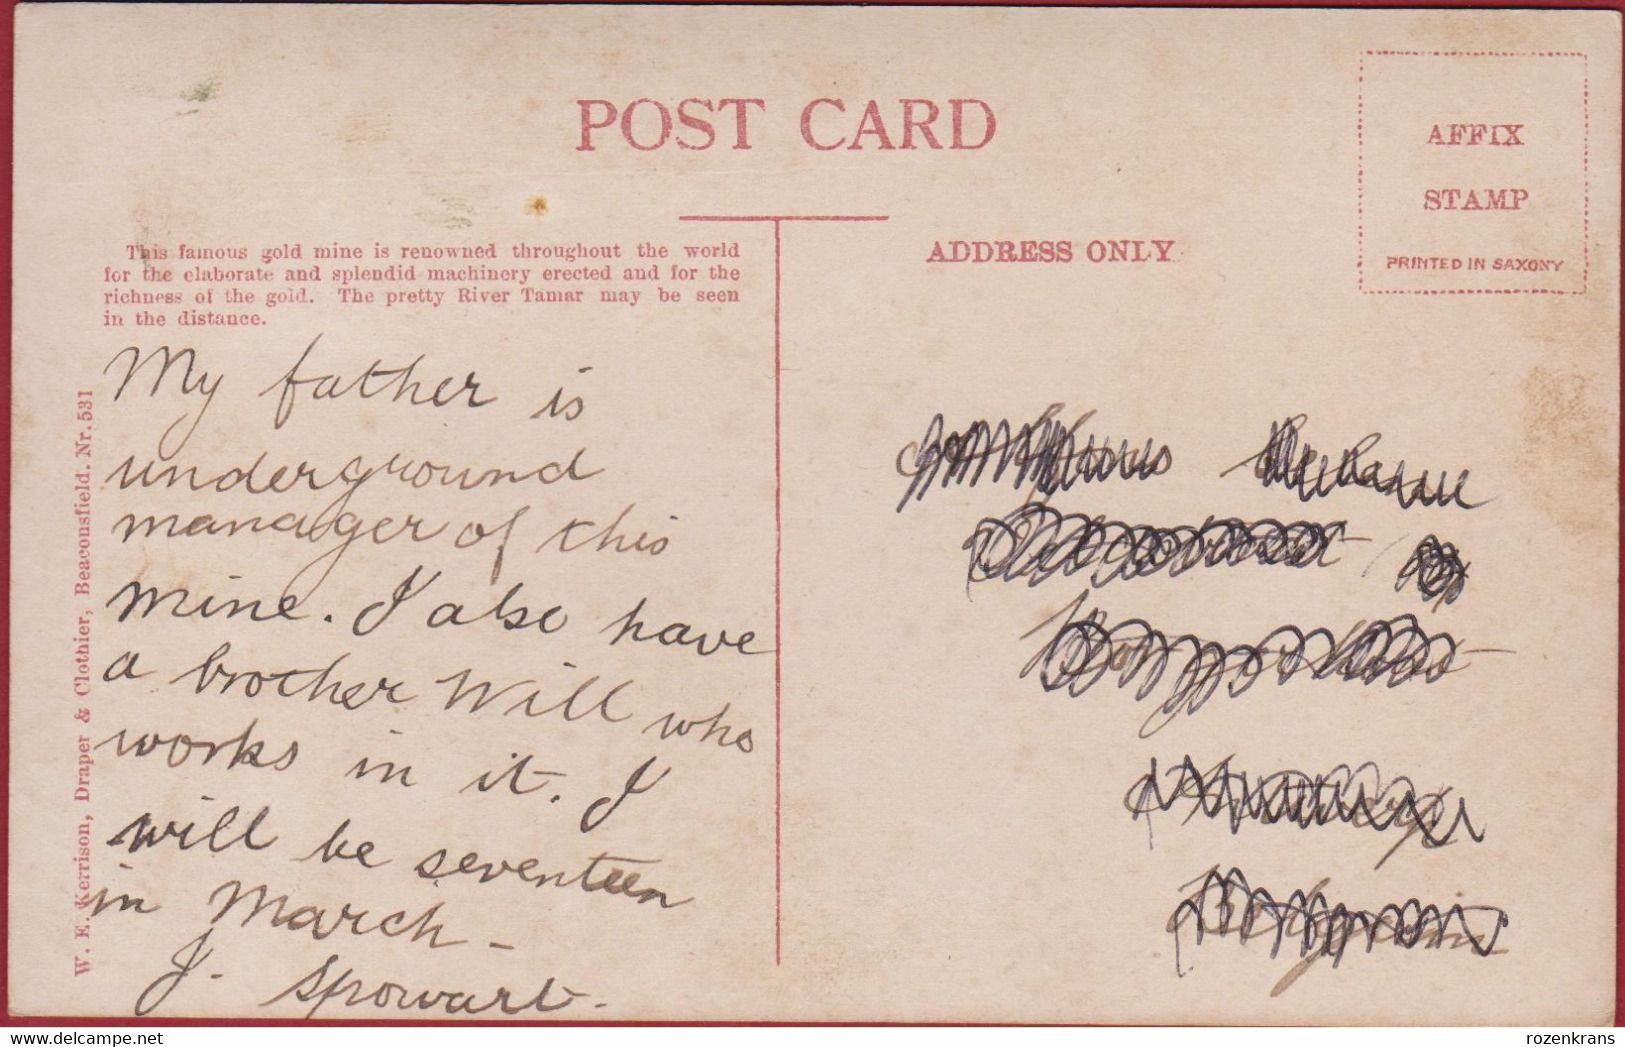 POST CARD
AFFIX
STAMP
PRINTED IN SAXONY
This famous gold mine is renowned throughout the world
for the elaborate and splendid machinery erected and for the
richness of the gold. The pretty River Tamar may be seen
in the distance.
ADDRESS ONLY
W. E. Kerrison, Draper & Clothier, Beaconsfield. Nr. 531
My father is
underground
manager of this
mine. I also have
a brother Will who
works in it. I
will be seventeen
in March –
J. Spowart.
rozenkrans
delcampe.net